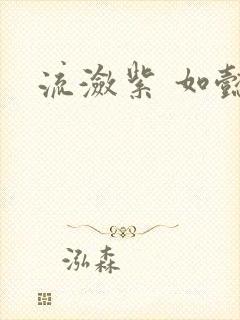 流潋紫 如懿
泓森